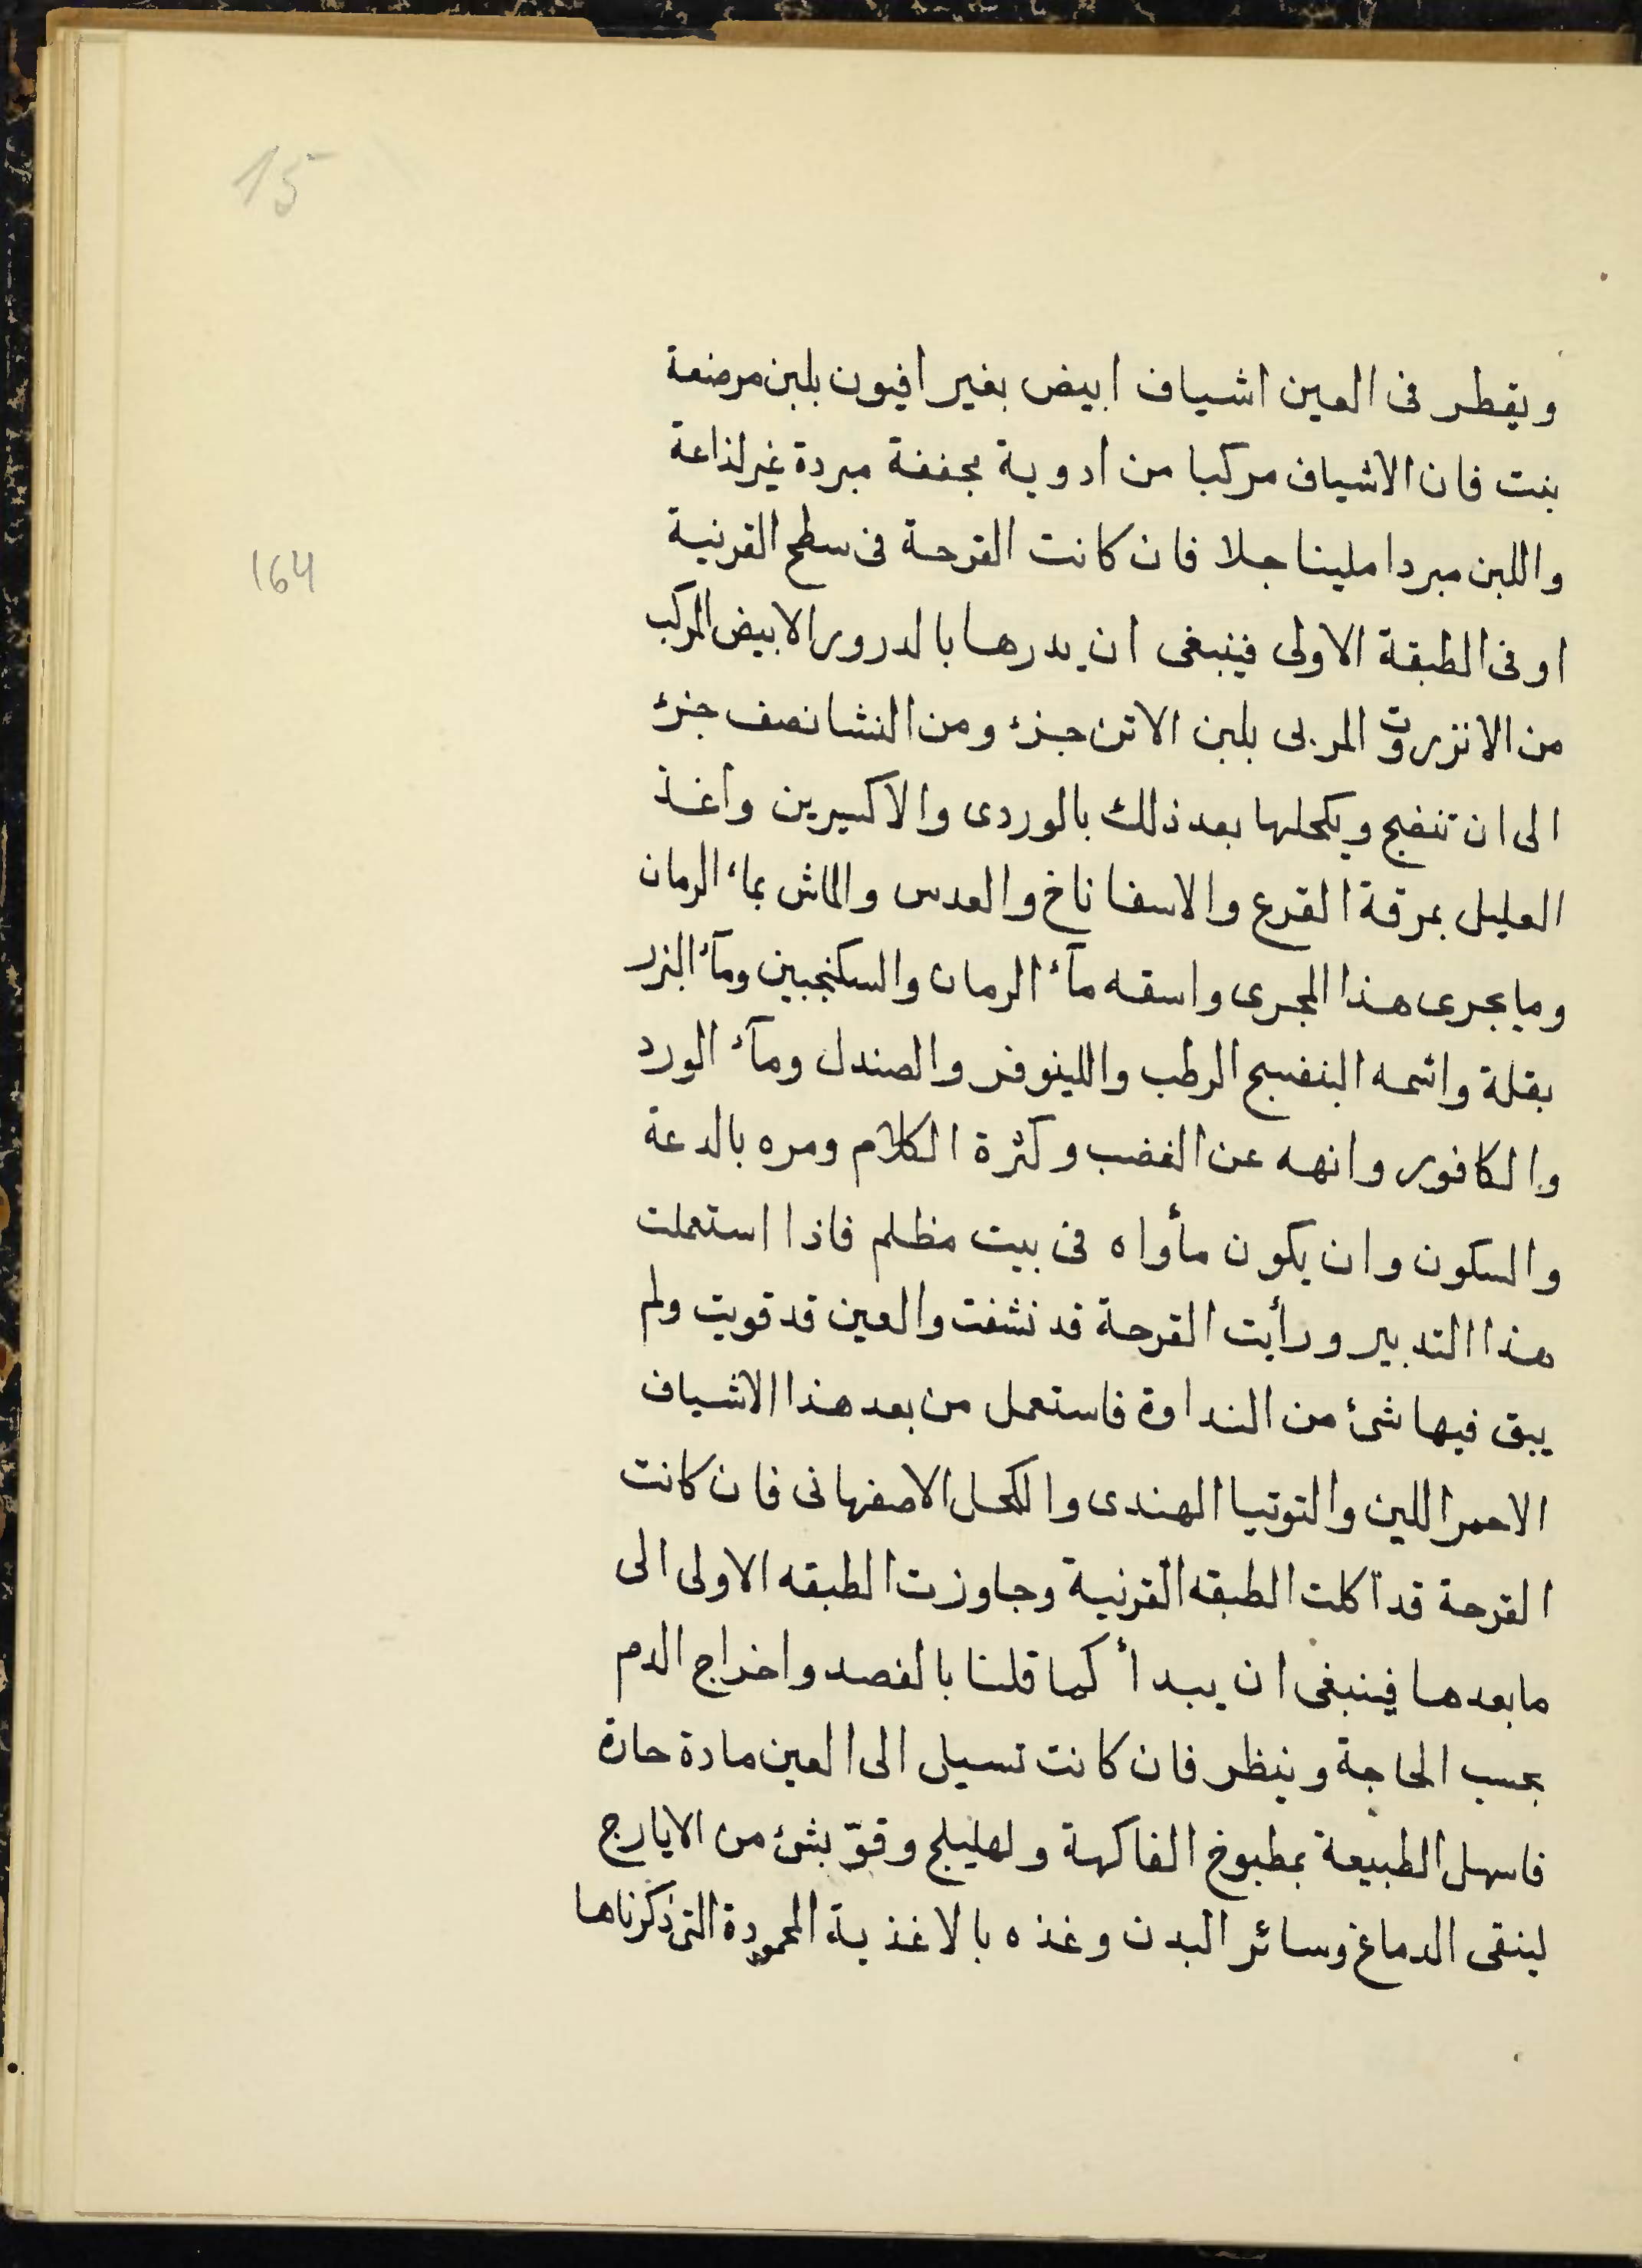 15
ويقطر فى العين اشياف ابيض بغير افيون بلبن مرضعة
بنت فان الاشياف مركبا من ادوية مجففة مبردة غير لذاعة
واللبن مبردا ملينا جلا فان كانت القرحة فى سطح القرنية
164
او فى الطبقة الاولى فينبغى ان يدرها بالدرور الابيض المركب
من الانزروت المربى بلبن الاتن جزء ومن النشا نصف جزء
الى ان تنضج ويكحلها بعد ذلك بالوردى والاكسيرين واغذ
العليل بمرقة القرع والاسفاناخ والعدس والماش بماء الرمان
وما يجرى هذا المجرى واسقه مآء الرمان والسكنجبين ومآء البزر
بقلة واشمه البنفسج الرطب واللينوفر والصندل ومآء الورد
والكافور وانهه عن الغضب وكثرة الكلام ومره بالدعة
والسكون وان يكون مأواه فى بيت مظلم فاذا استعملت
هذا التدبير ورأيت القرحة قد نشفت والعين قد قويت ولم
يبق فيها شئ من النداوة فاستعمل من بعد هذا الاشياف
الاحمر اللين والتوتيا الهندى والكحل الاصفهانى فان كانت
القرحة قد اكلت الطبقه القرنية وجاوزت الطبقه الاولى الى
ما بعدها فينبغى ان يبدأ كما قلنا بالفصد واخراج الدم
بحسب الحاجة وينظر فان كانت تسيل الى العين مادة حارة
فاسهل الطبيعة بمطبوخ الفاكهة ولهليلج وقوّ بشئ من الايارج
لينقى الدماغ وسائر البدن وغذه بالاغذية المحمودة التى ذكرناها